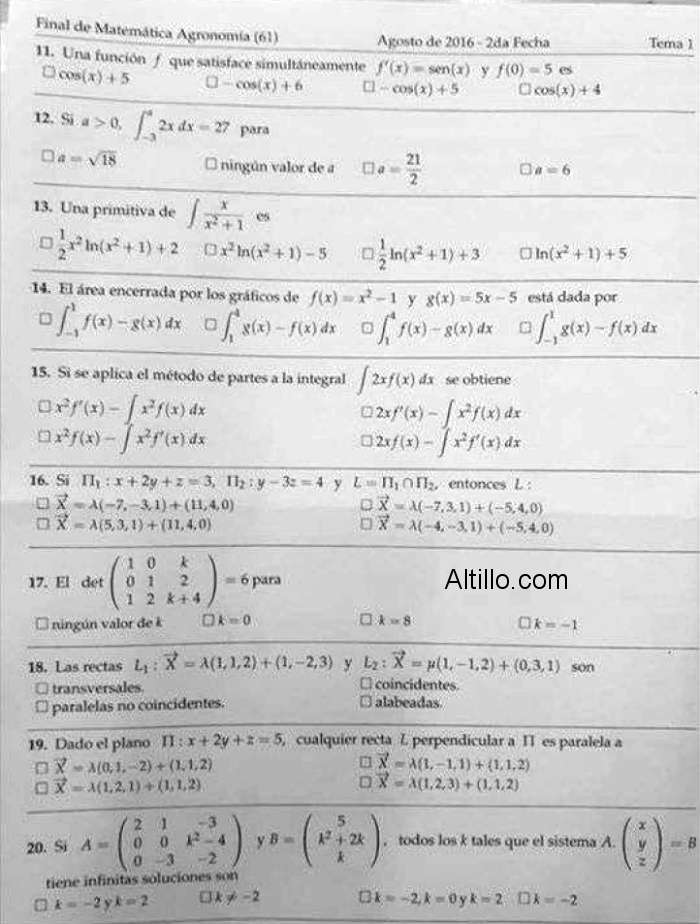 Final de Matemática Agronomía (61) Agosto de 2016 - 2da Fecha Tema 1
11. Una función f que satisface simultáneamente f'(x) = sen(x) y f(0) = 5 es
☐ cos(x) + 5 ☐ − cos(x) + 6 ☐ − cos(x) + 5 ☐ cos(x) + 4
12. Si a > 0, ∫_{-3}^{a} 2x dx = 27 para
☐ a = √18 ☐ ningún valor de a ☐ a = 21/2 ☐ a = 6
13. Una primitiva de ∫ x/(x² + 1) es
☐ 1/2 x² ln(x² + 1) + 2 ☐ x² ln(x² + 1) − 5 ☐ 1/2 ln(x² + 1) + 3 ☐ ln(x² + 1) + 5
14. El área encerrada por los gráficos de f(x) = x² − 1 y g(x) = 5x − 5 está dada por
☐ ∫_{-1}^{1} f(x) − g(x) dx ☐ ∫_{1}^{4} g(x) − f(x) dx ☐ ∫_{1}^{4} f(x) − g(x) dx ☐ ∫_{-1}^{1} g(x) − f(x) dx
15. Si se aplica el método de partes a la integral ∫ 2xf(x) dx se obtiene
☐ x² f'(x) − ∫ x² f(x) dx ☐ 2xf'(x) − ∫ x² f(x) dx
☐ x² f(x) − ∫ x² f'(x) dx ☐ 2xf(x) − ∫ x² f'(x) dx
16. Si Π₁ : x + 2y + z = 3, Π₂ : y − 3z = 4 y L = Π₁ ∩ Π₂, entonces L :
☐ X⃗ = λ(−7, −3, 1) + (11, 4, 0) ☐ X⃗ = λ(−7, 3, 1) + (−5, 4, 0)
☐ X⃗ = λ(5, 3, 1) + (11, 4, 0) ☐ X⃗ = λ(−4, −3, 1) + (−5, 4, 0)
17. El det ( 1 0 k
0 1 2
1 2 k + 4 ) = 6 para
Altillo.com
☐ ningún valor de k ☐ k = 0 ☐ k = 8 ☐ k = −1
18. Las rectas L₁ : X⃗ = λ(1, 1, 2) + (1, −2, 3) y L₂ : X⃗ = μ(1, −1, 2) + (0, 3, 1) son
☐ transversales. ☐ coincidentes.
☐ paralelas no coincidentes. ☐ alabeadas.
19. Dado el plano Π : x + 2y + z = 5, cualquier recta L perpendicular a Π es paralela a
☐ X⃗ = λ(0, 1, −2) + (1, 1, 2) ☐ X⃗ = λ(1, −1, 1) + (1, 1, 2)
☐ X⃗ = λ(1, 2, 1) + (1, 1, 2) ☐ X⃗ = λ(1, 2, 3) + (1, 1, 2)
20. Si A = ( 2 1 −3
0 0 k² − 4
0 −3 −2 ) y B = ( 5
k² + 2k
k ), todos los k tales que el sistema A. ( x
y
z ) = B
tiene infinitas soluciones son
☐ k = −2 y k = 2 ☐ k ≠ −2 ☐ k = −2, k = 0 y k = 2 ☐ k = −2